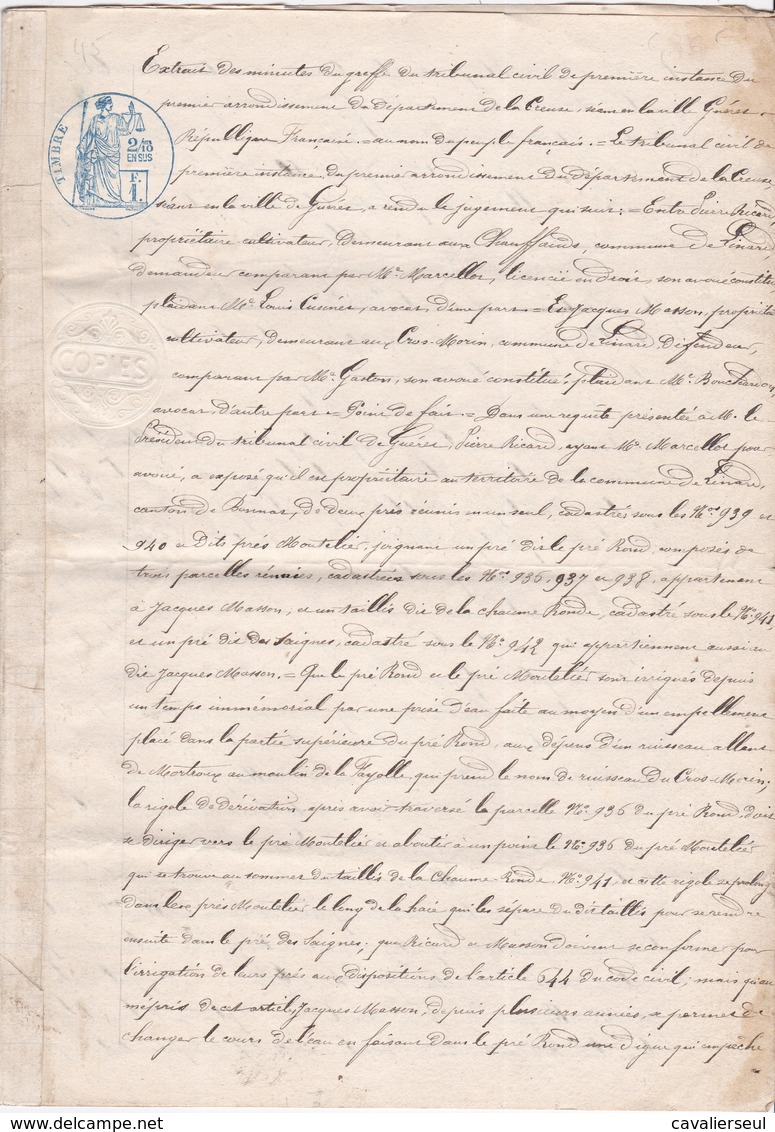 Extrait des minutes du greffe du tribunal civil de première instance du
premier arrondissement du département de la Creuse, séant en la ville Guéret =
République Française. = au nom du peuple français. = Le tribunal civil de
première instance du premier arrondissement du département de la Creuse,
séant en la ville de Guéret, a rendu le jugement qui suit: = Entre Pierre Ricard,
propriétaire cultivateur, demeurant aux Chauffaids, commune de Linard,
demandeur comparant par Me Marcellot, licencié en droit, son avoué constitué
plaidant Me Louis Cusinet, avocat, d'une part = Et Jacques Masson, propriétaire
cultivateur, demeurant au Cros-Morin, commune de Linard, Défendeur,
comparant par Me Gaston, son avoué constitué; plaidant Me
avocat, d'autre part = Point de fait. = Dans une requête présentée à M. le
Président du tribunal civil de Guéret, Pierre Ricard, ayant Me Marcellot pour
avoué, a exposé qu'il est propriétaire au territoire de la commune de Linard,
canton de Bonnat, de deux prés réunis en un seul, cadastrés sous les Nos 939 et
940 et dits prés Montelier, joignant un pré dit le pré Rond, composés de
trois parcelles réunies, cadastrées sous les Nos 936, 937 et 938, appartenant
à Jacques Masson, et un taillis dit de la Chaume Ronde, cadastré sous le No 941
et un pré dit des Saignes, cadastré sous le No 942 qui appartiennent aussi au
dit Jacques Masson. = Que le pré Rond et le pré Montelier sont irrigués depuis
un temps immémorial par une prise d'eau faite au moyen d'un empellement
placé dans la partie supérieure du pré Rond, aux dépens d'un ruisseau allant
de Mortroux au moulin de la Fayolle, qui prend le nom de ruisseau du Cros-Morin;
la rigole de dérivation après avoir traversé la parcelle No 936 du pré Rond, doit
se diriger vers le pré Montelier et aboutir à un point le No 936 du pré Montelier
qui se trouve au sommet du taillis de la Chaume Ronde, No 941, et cette rigole se prolonge
dans les prés Montelier le long de la haie qui les sépare du dit taillis pour se rendre
ensuite dans le pré des Saignes; que Ricard et Masson doivent se conformer pour
l'irrigation de leurs prés aux dispositions de l'article 644 du code civil; mais qu'au
mépris de cet article, Jacques Masson, depuis plusieurs années, a permet de
changer le cours de l'eau en faisant dans le pré Rond une digue qui empêche
TIMBRE
2/10
EN SUS
F.
1.
COPIES
cavalierseul